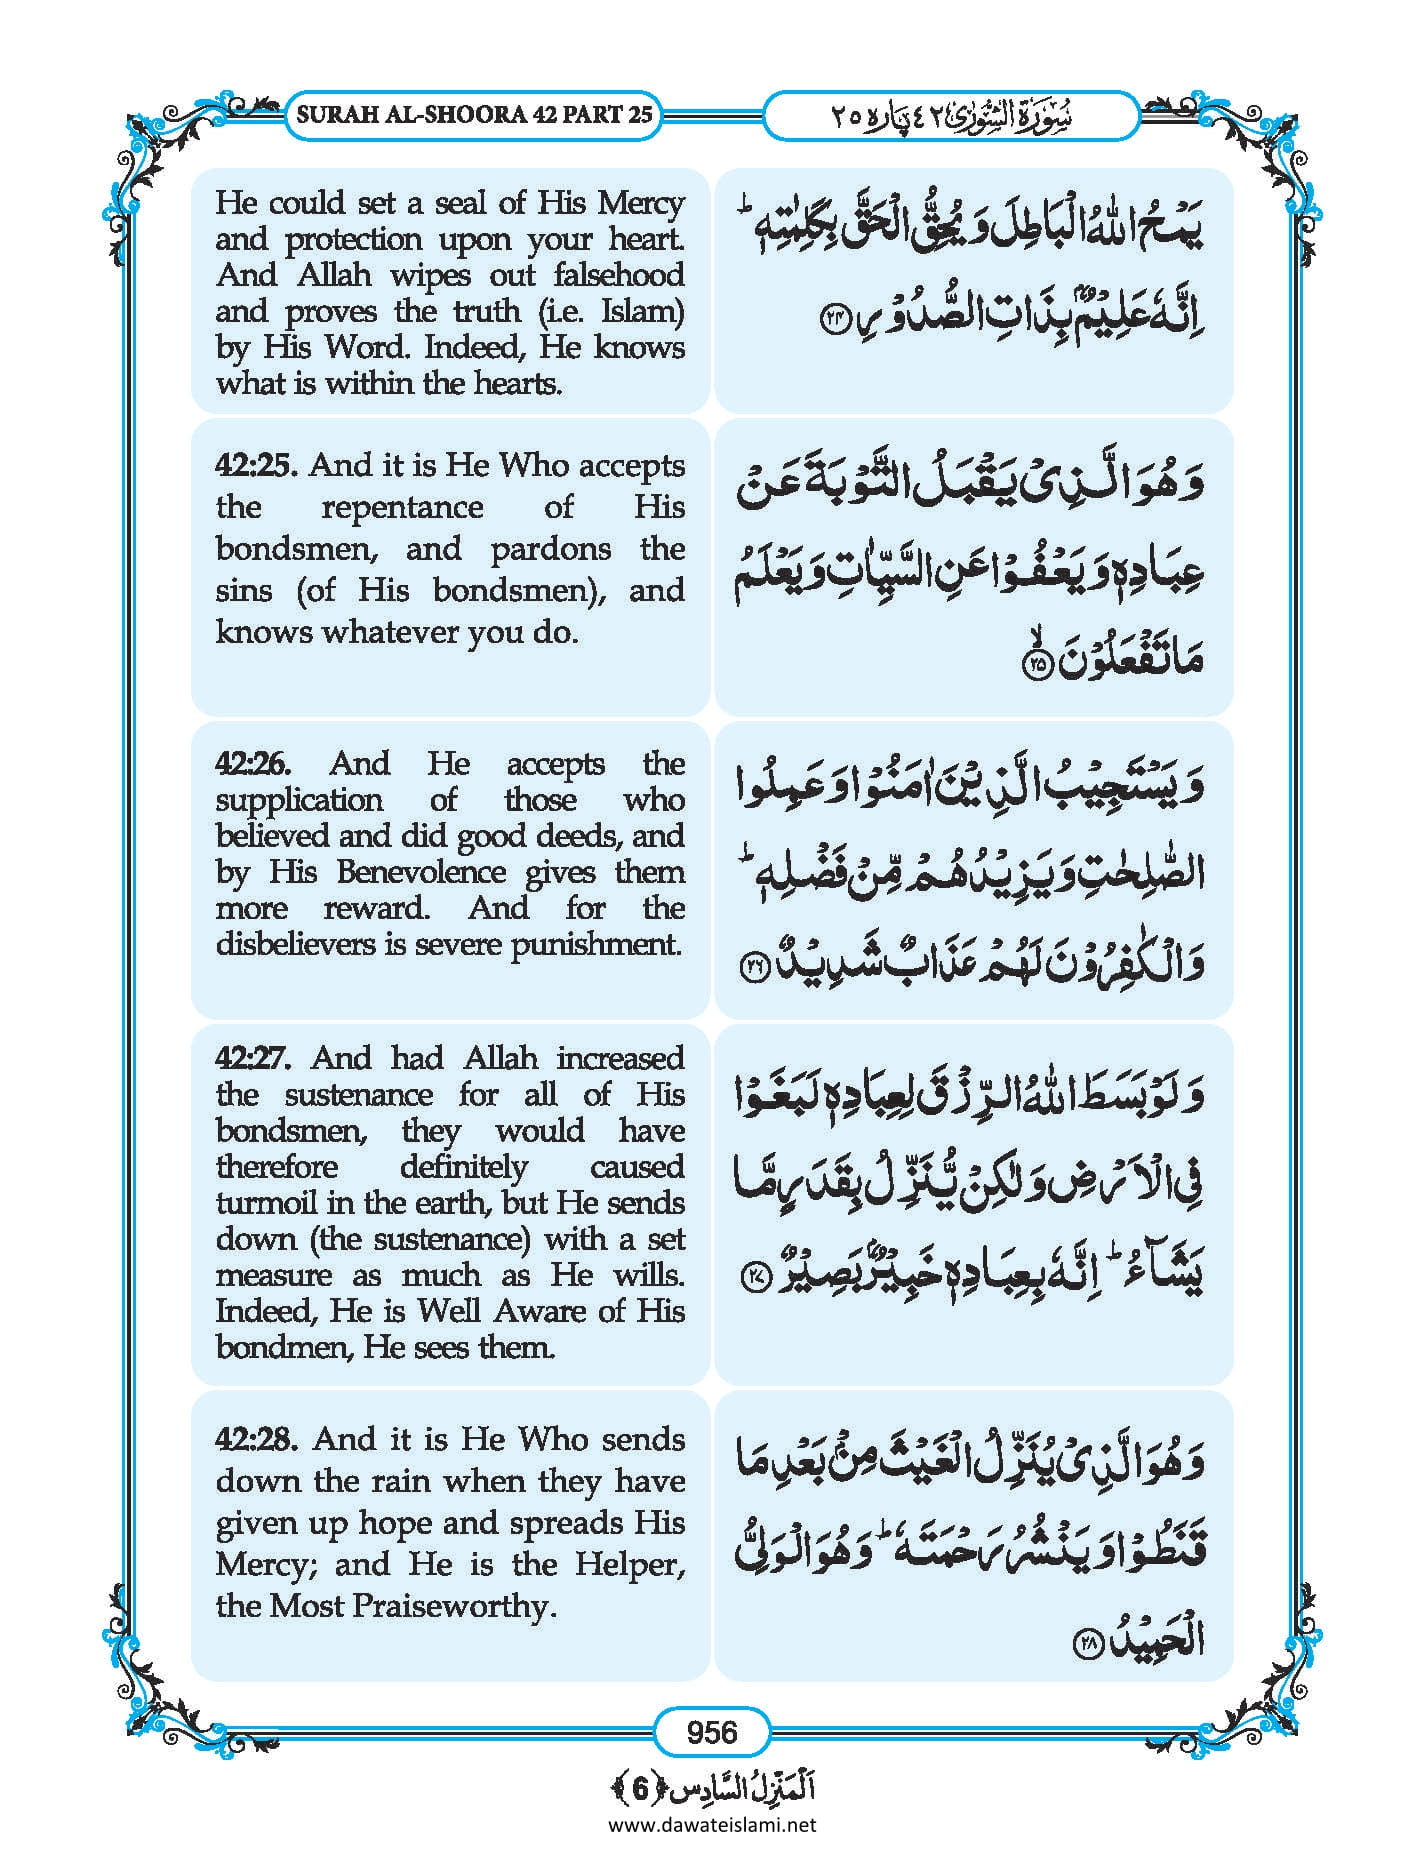 SURAH AL-SHOORA 42 PART 25
سُوۡرَۃُ الشُّوۡرٰی ۴۲ پارہ ۲۵
He could set a seal of His Mercy
and protection upon your heart.
And Allah wipes out falsehood
and proves the truth (i.e. Islam)
by His Word. Indeed, He knows
what is within the hearts.
یَمۡحُ اللّٰہُ الۡبَاطِلَ وَ یُحِقُّ الۡحَقَّ بِکَلِمٰتِہٖ ؕ
اِنَّہٗ عَلِیۡمٌۢ بِذَاتِ الصُّدُوۡرِ ﴿۲۴﴾
42:25. And it is He Who accepts
the repentance of His
bondsmen, and pardons the
sins (of His bondsmen), and
knows whatever you do.
وَ ہُوَ الَّذِیۡ یَقۡبَلُ التَّوۡبَۃَ عَنۡ
عِبَادِہٖ وَ یَعۡفُوۡا عَنِ السَّیِّاٰتِ وَ یَعۡلَمُ
مَا تَفۡعَلُوۡنَ ﴿ۙ۲۵﴾
42:26. And He accepts the
supplication of those who
believed and did good deeds, and
by His Benevolence gives them
more reward. And for the
disbelievers is severe punishment.
وَ یَسۡتَجِیۡبُ الَّذِیۡنَ اٰمَنُوۡا وَ عَمِلُوا
الصّٰلِحٰتِ وَ یَزِیۡدُہُمۡ مِّنۡ فَضۡلِہٖ ؕ
وَ الۡکٰفِرُوۡنَ لَہُمۡ عَذَابٌ شَدِیۡدٌ ﴿۲۶﴾
42:27. And had Allah increased
the sustenance for all of His
bondsmen, they would have
therefore definitely caused
turmoil in the earth, but He sends
down (the sustenance) with a set
measure as much as He wills.
Indeed, He is Well Aware of His
bondmen, He sees them.
وَ لَوۡ بَسَطَ اللّٰہُ الرِّزۡقَ لِعِبَادِہٖ لَبَغَوۡا
فِی الۡاَرۡضِ وَ لٰکِنۡ یُّنَزِّلُ بِقَدَرٍ مَّا
یَشَآءُ ؕ اِنَّہٗ بِعِبَادِہٖ خَبِیۡرٌۢ بَصِیۡرٌ ﴿۲۷﴾
42:28. And it is He Who sends
down the rain when they have
given up hope and spreads His
Mercy; and He is the Helper,
the Most Praiseworthy.
وَ ہُوَ الَّذِیۡ یُنَزِّلُ الۡغَیۡثَ مِنۡۢ بَعۡدِ مَا
قَنَطُوۡا وَ یَنۡشُرُ رَحۡمَتَہٗ ؕ وَ ہُوَ الۡوَلِیُّ
الۡحَمِیۡدُ ﴿۲۸﴾
956
اَلۡمَنۡزِلُ السَّادِس ﴿6﴾
www.dawateislami.net